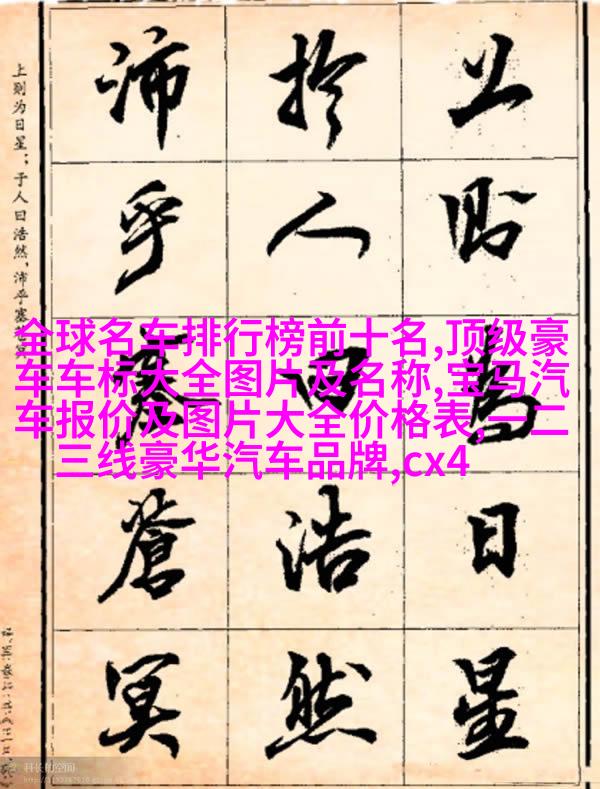 上則為日星
於人曰浩然
沛乎塞蒼冥
上则为日星；于人曰浩然，沛乎塞苍冥
全球名车排行榜前十名,顶级豪
车车标大全图片及名称,宝马汽
车报价及图片大全价格表,一二
三线豪华汽车品牌,cx4
科长的空间